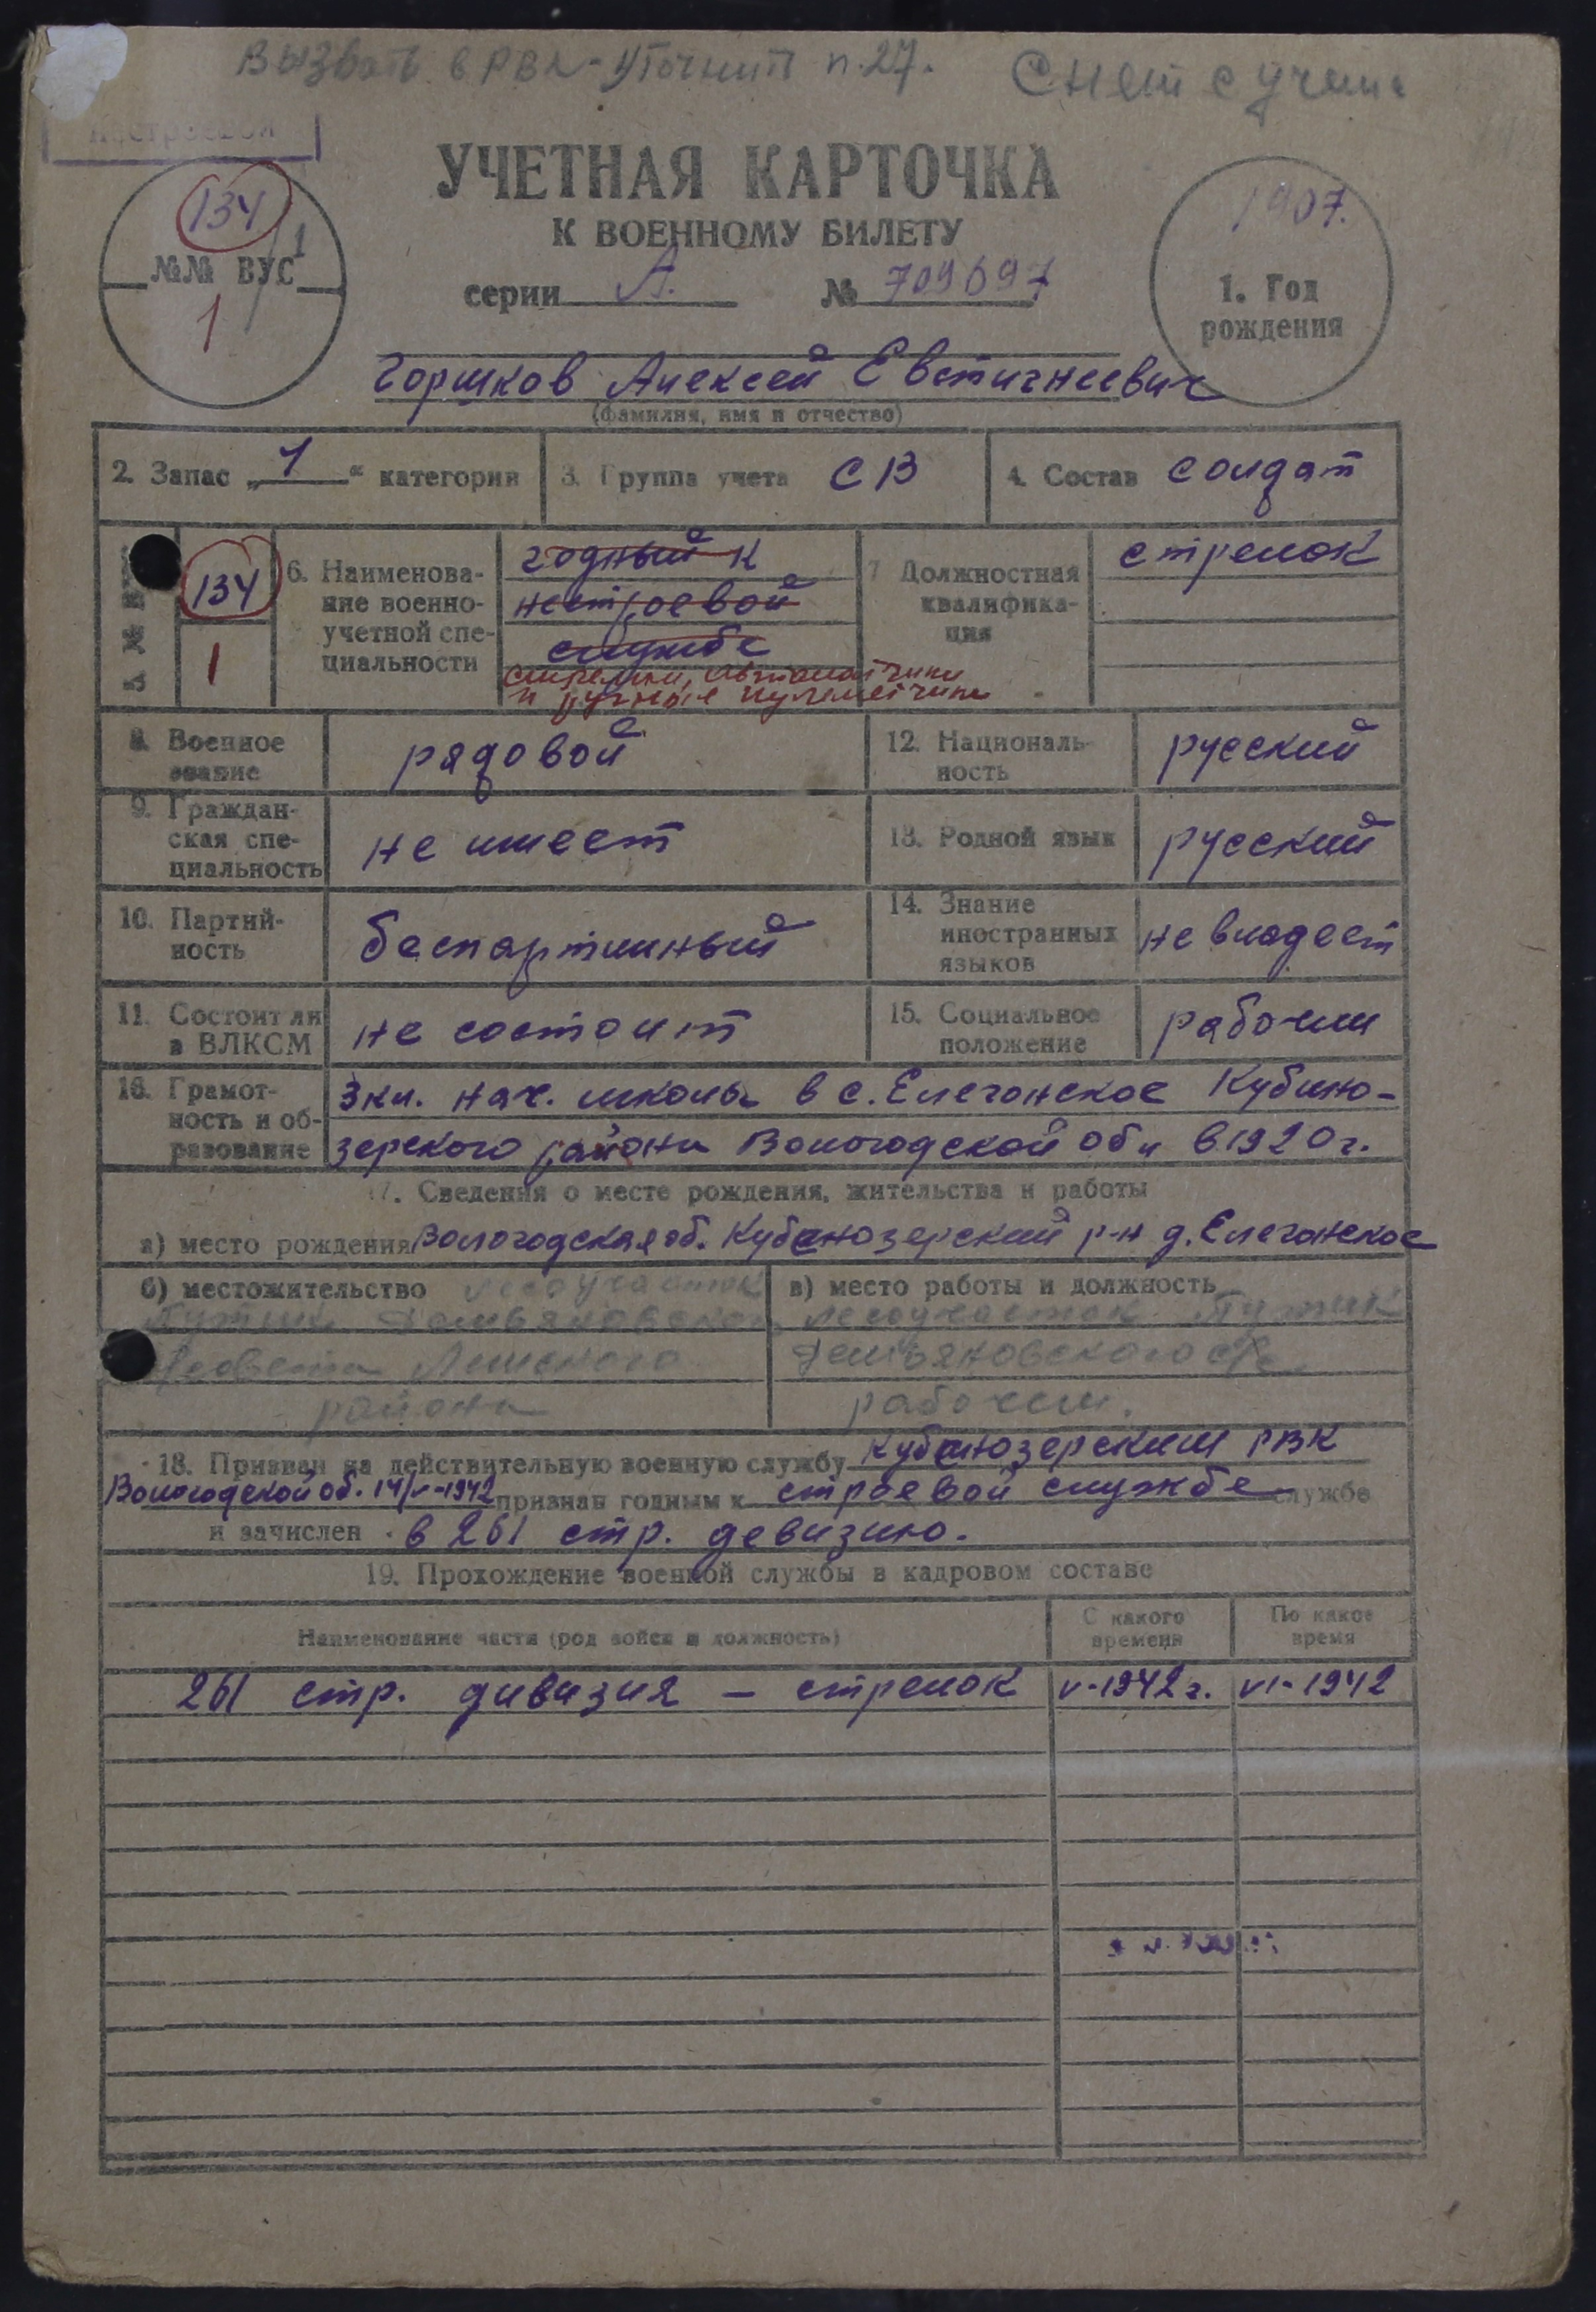 Вызвать в РВК - Уточнить п. 27. Снят с учета
УЧЕТНАЯ КАРТОЧКА
К ВОЕННОМУ БИЛЕТУ
серии А. № 709697
134/1
№№ ВУС
1
1907.
1. Год
рождения
Горшков Алексей Евстигнеевич
(фамилия, имя и отчество)
2. Запас „1“ категории
3. Группа учета СВ
4. Состав солдат
134
1
6. Наименова-
ние военно-
учетной спе-
циальности
годный к
нестроевой
службе
стрелки, автоматчики
и ручные пулеметчики
7 Должностная
квалифика-
ция
стрелок
8. Военное
звание
рядовой
12. Националь-
ность
русский
9. Граждан-
ская спе-
циальность
не имеет
13. Родной язык
русский
10. Партий-
ность
беспартийный
14. Знание
иностранных
языков
не владеет
11. Состоит ли
в ВЛКСМ
не состоит
15. Социальное
положение
рабочий
16. Грамот-
ность и об-
разование
3 кл. нач. школы в с. Елегонское Кубино-
зерского района Вологодской обл в 1920 г.
17. Сведения о месте рождения, жительства и работы
а) место рождения Вологодская об. Кубинозерский р-н д. Елегонское
б) местожительство лесоучасток
Демьяновского
с/совета Ленского
района
в) место работы и должность
лесоучасток
Демьяновского с/с
рабочий.
18. Призван на действительную военную службу Кубинозерским РВК
Вологодской об. 14/V-1942 признан годным к строевой службе службе
и зачислен в 261 стр. девизию.
19. Прохождение военной службы в кадровом составе
Наименование части (род войск и должность)
С какого
времени
По какое
время
261 стр. дивизия — стрелок V-1942 г. VI-1942